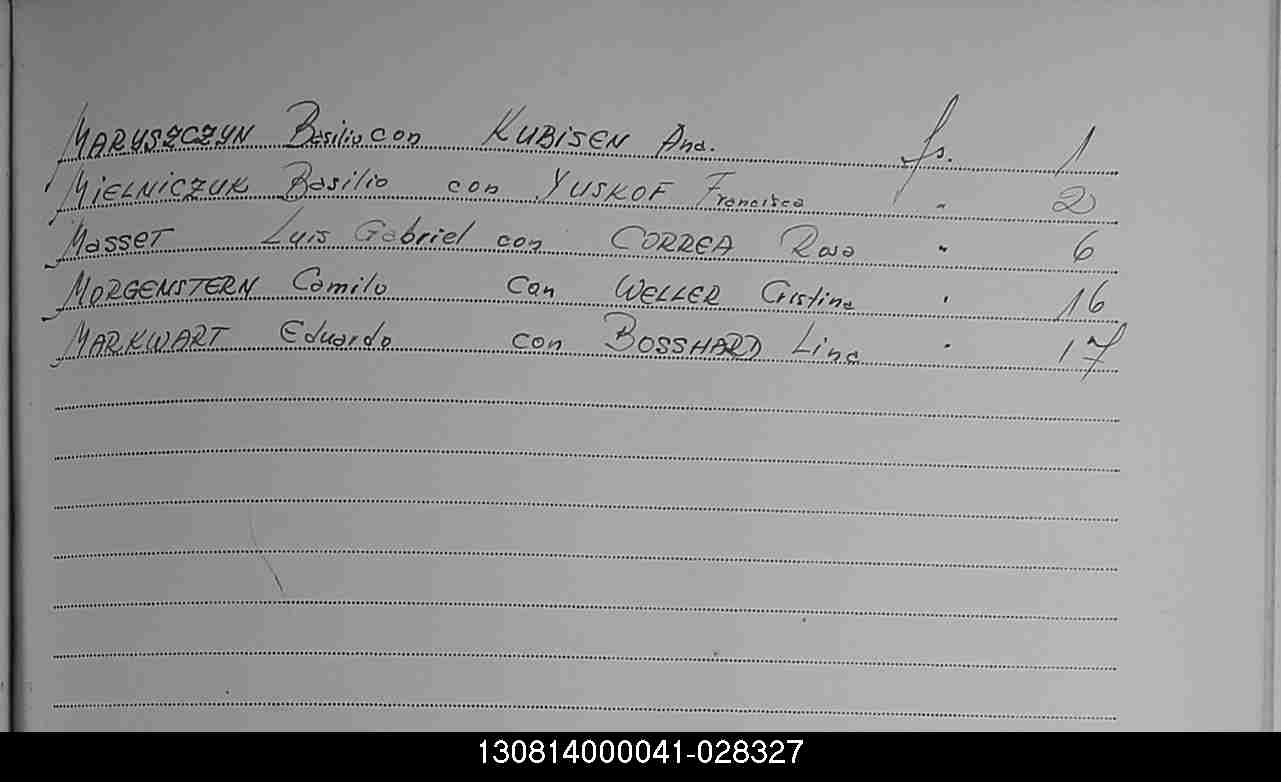 MARYSZCZYN Basilio con KUBISEN Ana. fs. 1
MIELNICZUK Basilio con YUSKOF Francisca " 2
Masset Luis Gabriel con CORREA Rosa " 6
MORGENSTERN Camilo Con WELLER Cristina " 16
MARKWART Eduardo con BOSSHARD Lina " 17
130814000041-028327